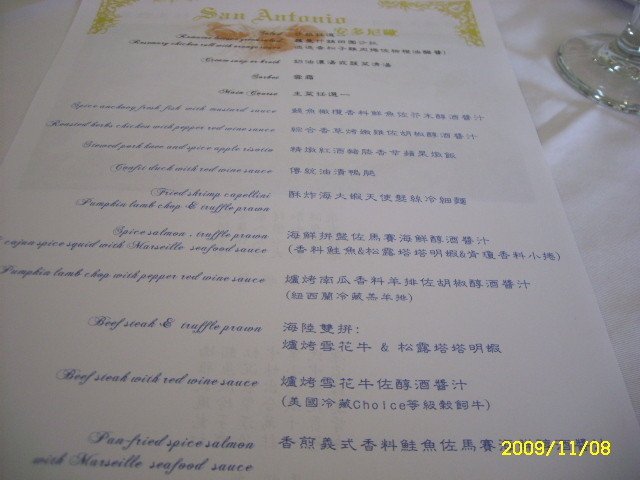 San Antonio
安多尼歐
Rosemary chicken roll with orange sauce
Cream soup or broth 奶油濃湯或蔬菜清湯
Sorbet 雪霜
Main Course 主菜任選一
Spice anchovy fresh fish with mustard sauce 鯷魚橄欖香料鮮魚佐芥末醇酒醬汁
Roasted herbs chicken with pepper red wine sauce 綜合香草烤嫩雞佐胡椒醇酒醬汁
Stewed pork knee and spice apple risotto 精燉紅酒豬膝香芋蘋果燉飯
Confit duck with red wine sauce 傳統油漬鴨腿
Fried shrimp capellini 酥炸海大蝦天使髮絲冷細麵
Pumpkin lamb chop & truffle prawn
Spice salmon . truffle prawn 海鮮拼盤佐馬賽海鮮醇酒醬汁
cajun spice squid with Marseille seafood sauce (香料鮭魚&松露塔塔明蝦&肯瓊香料小捲)
Pumpkin lamb chop with pepper red wine sauce 爐烤南瓜香料羊排佐胡椒醇酒醬汁
(紐西蘭冷藏羔羊排)
Beef steak & truffle prawn 海陸雙拼:
爐烤雪花牛 & 松露塔塔明蝦
Beef steak with red wine sauce 爐烤雪花牛佐醇酒醬汁
(美國冷藏Choice等級穀飼牛)
Pan-fried spice salmon 香煎義式香料鮭魚佐馬賽
with Marseille seafood sauce
2009/11/08